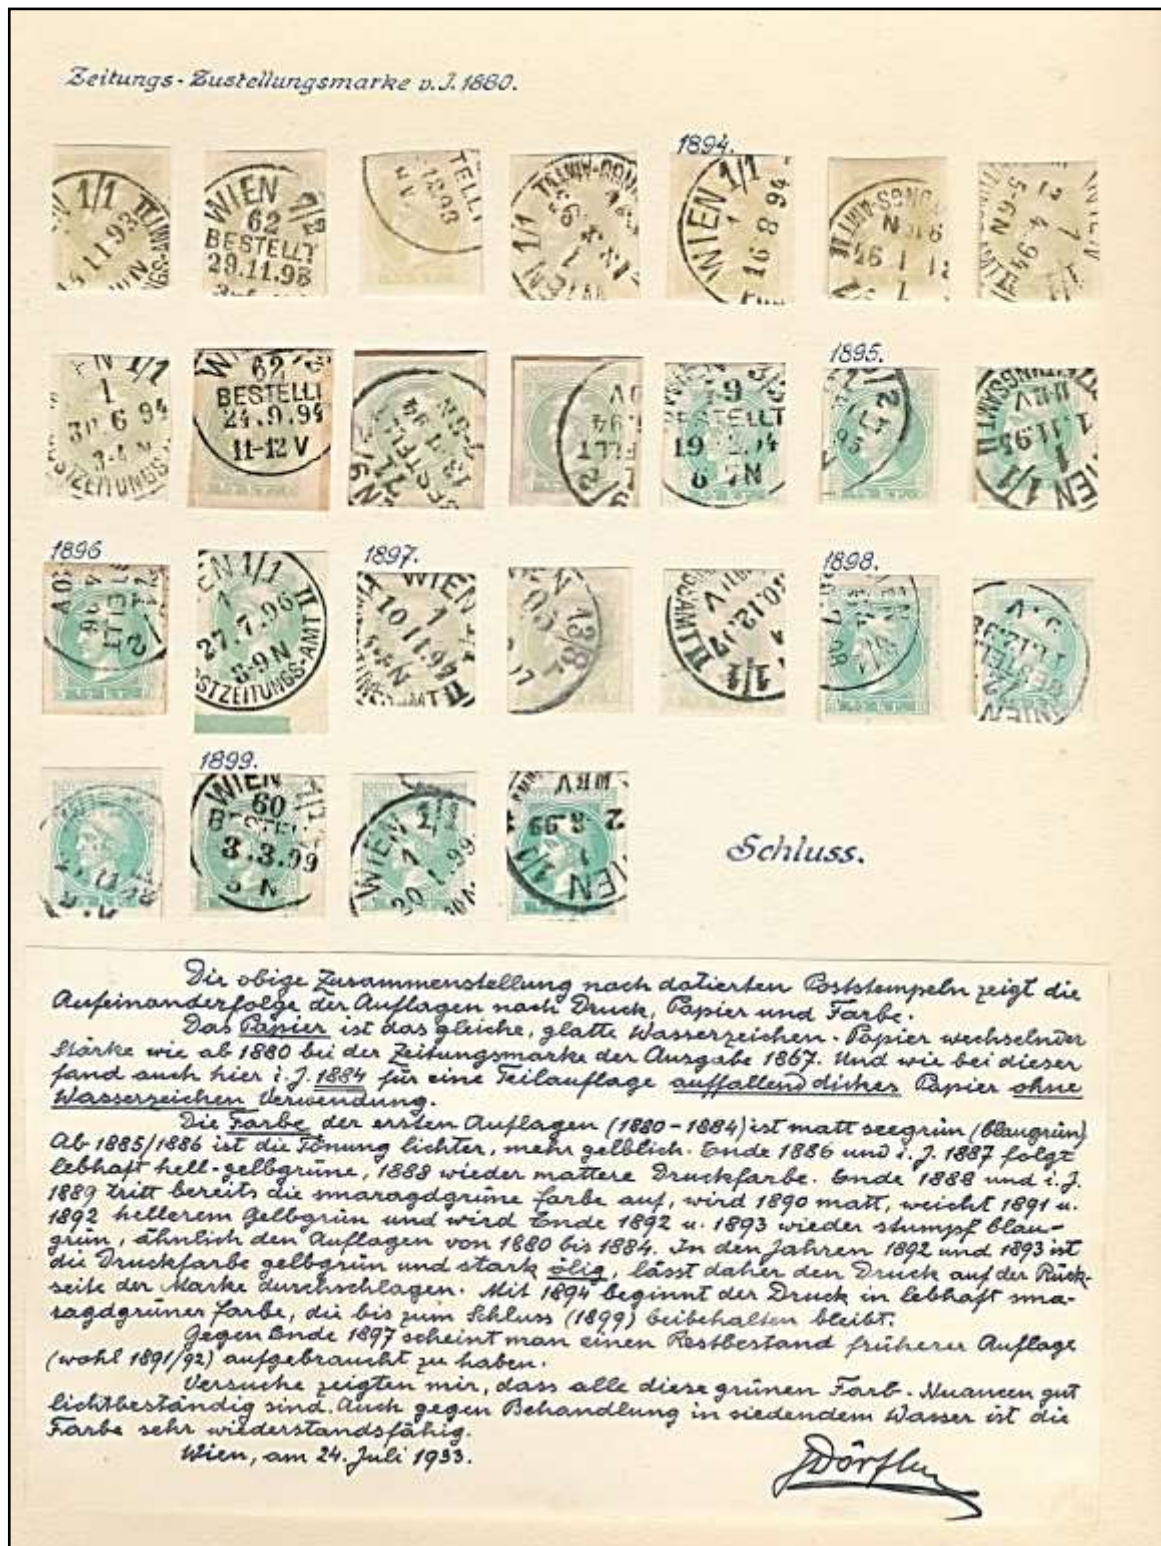 Zeitungs-Zustellungsmarke v.J.1880.
1894.
WIEN 1/1
1 1 93
WIEN
62
BESTELLT
29.11.93
WIEN 1/1
1
16 8 94
1895.
1
30 6 94
3-4 N
62
BESTELLT
24.9.94
11-12 V
BESTELLT
1896
1897.
1898.
EN 1/1
1
27.7.96
8-9 N
STZEITUNGS-AMT II
WIEN
1
1899.
WIEN
60
3.3.99
5 N
WIEN 1/1
1
Schluss.
Die obige Zusammenstellung nach datierten Poststempeln zeigt die
Aufeinanderfolge der Auflagen nach Druck, Papier und Farbe.
Das Papier ist das gleiche, glatte Wasserzeichen-Papier wechselnder
Stärke wie ab 1880 bei der Zeitungsmarke der Ausgabe 1867. Und wie bei dieser
fand auch hier i.J. 1884 für eine Teilauflage auffallend dickes Papier ohne
Wasserzeichen Verwendung.
Die Farbe der ersten Auflagen (1880-1884) ist matt seegrün (blaugrün)
Ab 1885/1886 ist die Tönung lichter, mehr gelblich. Ende 1886 und i.J. 1887 folgt
lebhaft hell-gelbgrüne, 1888 wieder mattere Druckfarbe. Ende 1888 und i.J.
1889 tritt bereits die smaragdgrüne Farbe auf, wird 1890 matt, weicht 1891 u.
1892 hellerem Gelbgrün und wird Ende 1892 u. 1893 wieder stumpf blau-
grün, ähnlich den Auflagen von 1880 bis 1884. In den Jahren 1892 und 1893 ist
die Druckfarbe gelbgrün und stark ölig, lässt daher den Druck auf der Rück-
seite der Marke durchschlagen. Mit 1894 beginnt der Druck in lebhaft sma-
ragdgrüner Farbe, die bis zum Schluss (1899) beibehalten bleibt.
Gegen Ende 1897 scheint man einen Restbestand früherer Auflage
(wohl 1891/92) aufgebraucht zu haben.
Versuche zeigten mir, dass alle diese grünen Farb-Nuancen gut
lichtbeständig sind. Auch gegen Behandlung in siedendem Wasser ist die
Farbe sehr wiederstandsfähig.
Wien, am 24. Juli 1933.